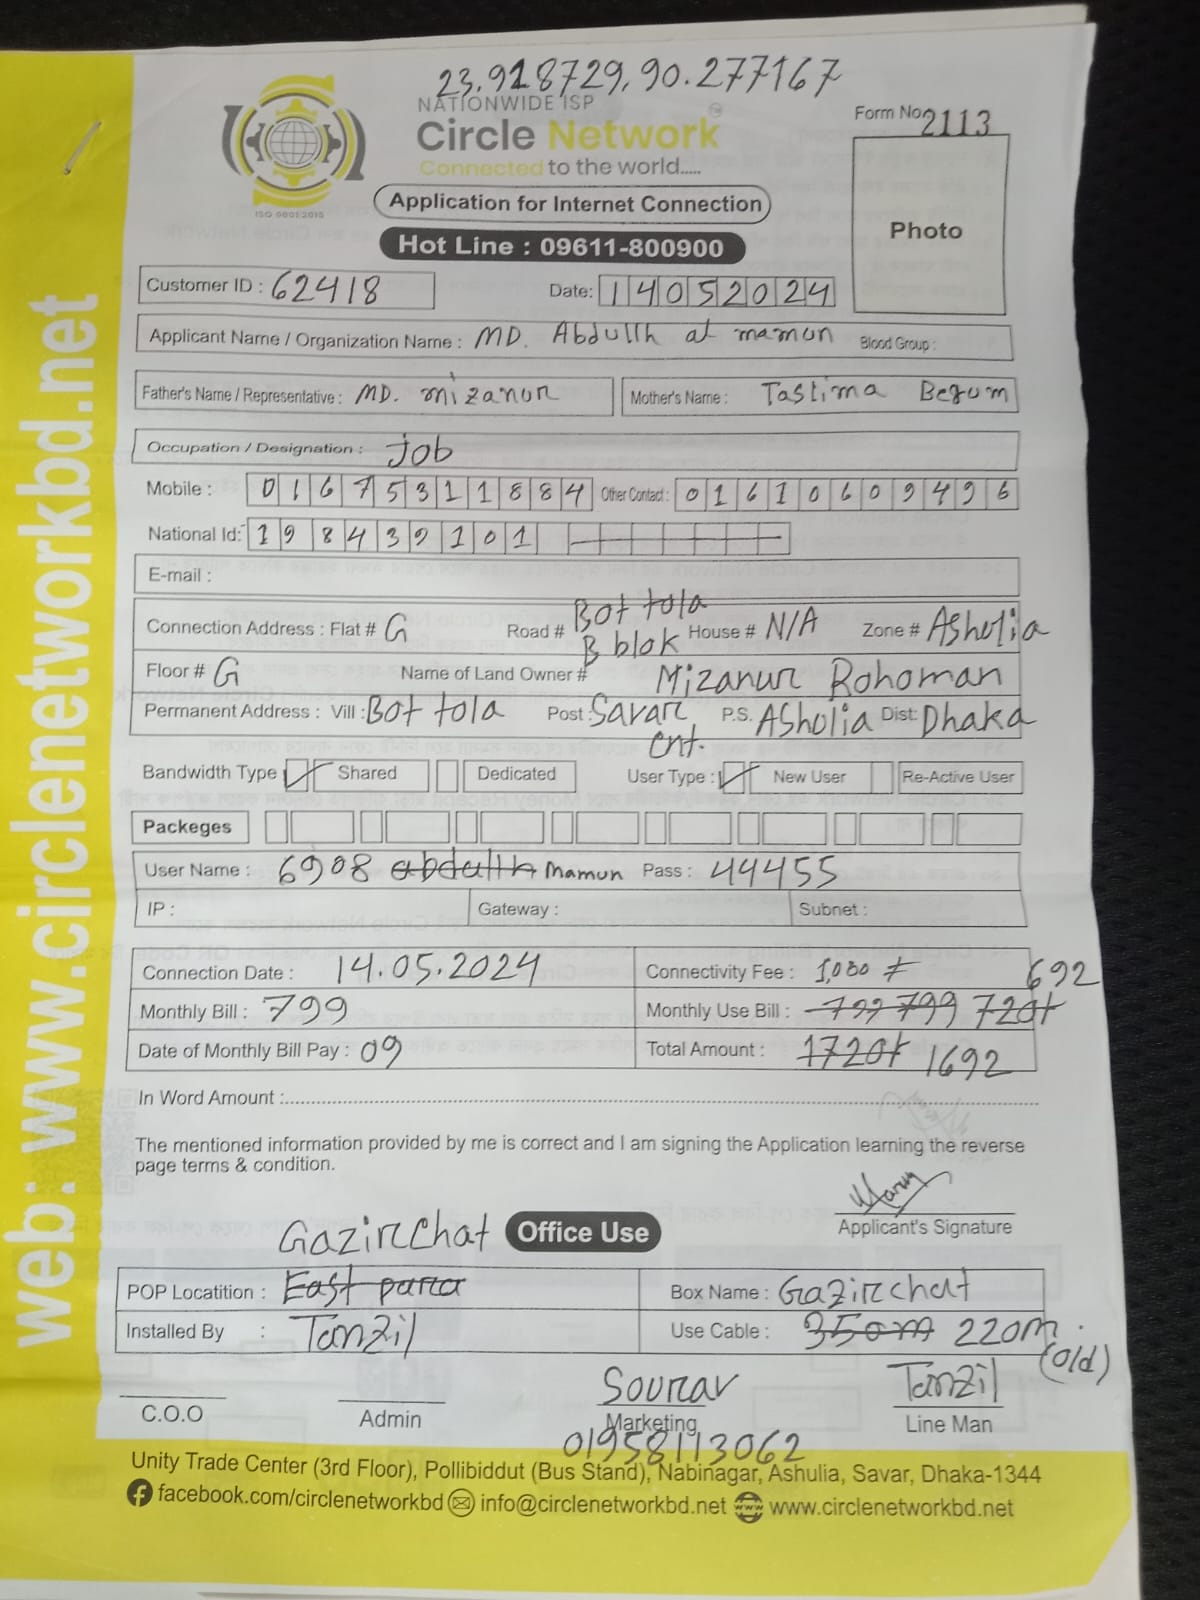 23.918729, 90.277167
NATIONWIDE ISP
Circle Network
Connected to the world.....
Form No. 2113
ISO 9001:2015
Application for Internet Connection
Photo
Hot Line : 09611-800900
Customer ID : 62418 Date: 14052024
Applicant Name / Organization Name : MD. Abdullh al mamun Blood Group :
Father's Name / Representative : MD. mizanur Mother's Name : Taslima Begum
Occupation / Designation : Job
Mobile : 01675311884 Other Contact : 01610609496
National Id: 198439101
E-mail :
Connection Address : Flat # G Road # Bot tola B blok House # N/A Zone # Ashulia
Floor # G Name of Land Owner # Mizanur Rohoman
Permanent Address : Vill : Bot tola Post : Savar cnt. P.S. Ashulia Dist: Dhaka
Bandwidth Type Shared Dedicated User Type : New User Re-Active User
Packeges
User Name : 6908 abdullh Mamun Pass : 44455
IP : Gateway : Subnet :
Connection Date : 14.05.2024 Connectivity Fee : 1,000 ৳
Monthly Bill : 799 Monthly Use Bill : 799 799 720৳ 692
Date of Monthly Bill Pay : 09 Total Amount : 1720৳ 1692
In Word Amount :
The mentioned information provided by me is correct and I am signing the Application learning the reverse
page terms & condition.
Applicant's Signature
Gazirchat Office Use
POP Locatition : East para Box Name : Gazirchat
Installed By : Tanzil Use Cable : 350m 220m. (old)
Sourav Tanzil
C.O.O Admin Marketing Line Man
01958113062
Unity Trade Center (3rd Floor), Pollibiddut (Bus Stand), Nabinagar, Ashulia, Savar, Dhaka-1344
facebook.com/circlenetworkbd info@circlenetworkbd.net www.circlenetworkbd.net
web: www.circlenetworkbd.net